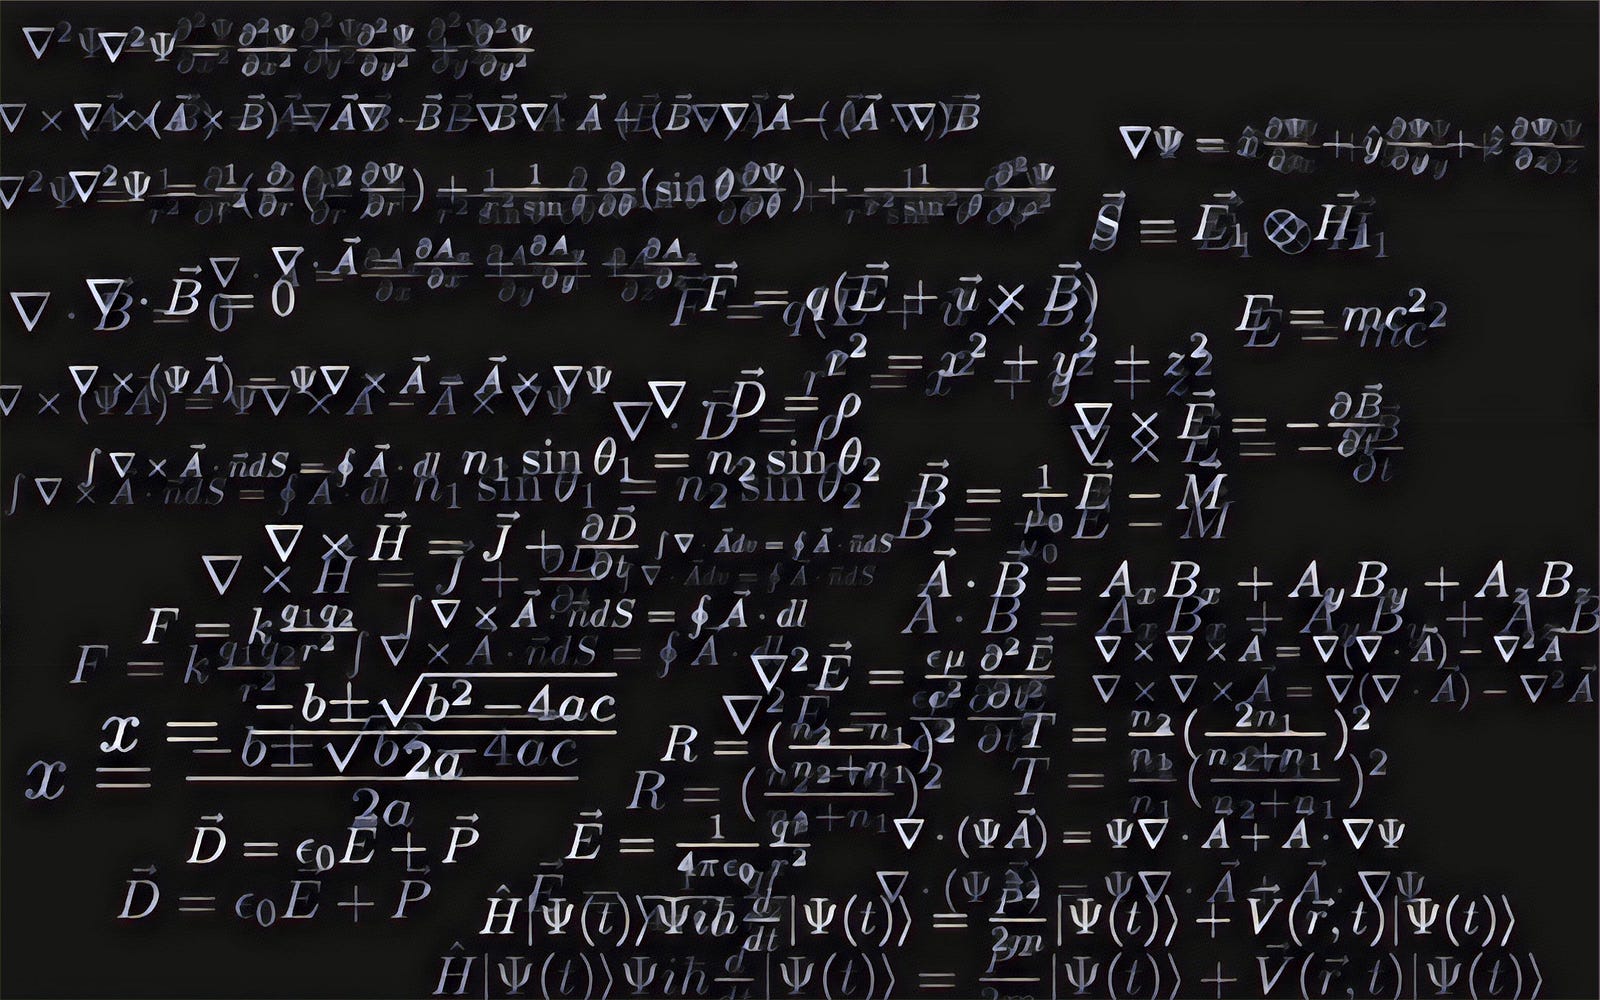 ∇²Ψ = ∂²Ψ/∂x² + ∂²Ψ/∂y² + ∂²Ψ/∂y²
∇ × (A⃗ × B⃗) = A⃗∇ · B⃗ − B⃗∇ · A⃗ + (B⃗ · ∇)A⃗ − (A⃗ · ∇)B⃗
∇Ψ = x̂ ∂Ψ/∂x + ŷ ∂Ψ/∂y + ẑ ∂Ψ/∂z
∇²Ψ = 1/r² ∂/∂r (r² ∂Ψ/∂r) + 1/(r² sin θ) ∂/∂θ (sin θ ∂Ψ/∂θ) +
S⃗ ≡ E⃗₁ ⊗ H⃗₁
∇ · A⃗ = ∂Aₓ/∂x + ∂A_y/∂y + ∂A_z/∂z
∇ · B⃗ = 0
F⃗ = q(E⃗ + u⃗ × B⃗)
E = mc²
r² = x² + y² + z²
∇ × (ΨA⃗) = Ψ∇ × A⃗ − A⃗ × ∇Ψ
∇ · D⃗ = ρ
∇ × E⃗ = −∂B⃗/∂t
∫ ∇ × A⃗ · n⃗dS = ∮ A⃗ · dl
n₁ sin θ₁ = n₂ sin θ₂
B⃗ = 1/μ₀ E⃗ − M⃗
∇ × H⃗ = J⃗ + ∂D⃗/∂t
∫ ∇ · A⃗dv = ∮ A⃗ · n⃗dS
A⃗ · B⃗ = AₓBₓ + A_yB_y + A_zB_z
F = k q₁q₂/r²
∫ ∇ × A⃗ · n⃗dS = ∮ A⃗ · dl
∇ × ∇ × A⃗ = ∇(∇ · A⃗) − ∇²A⃗
∇²E⃗ = ϵμ/c² ∂²E⃗/∂t²
x = (−b ± √(b² − 4ac))/2a
R = ((n₂−n₁)/(n₂+n₁))²
T = n₂/n₁ (2n₁/(n₂+n₁))²
D⃗ = ϵ₀E⃗ + P⃗
E⃗ = 1/(4πϵ₀) qr̂/r²
∇ · (ΨA⃗) = Ψ∇ · A⃗ + A⃗ · ∇Ψ
Ĥ|Ψ(t)⟩Ψiħ d/dt |Ψ(t)⟩ = P̂²/2m |Ψ(t)⟩ + V(r⃗, t)|Ψ(t)⟩